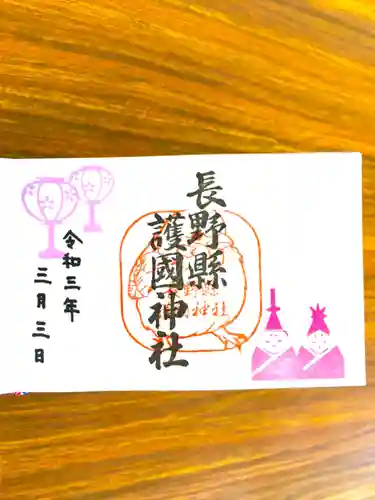 長野縣
護國神社
令和三年
三月三日